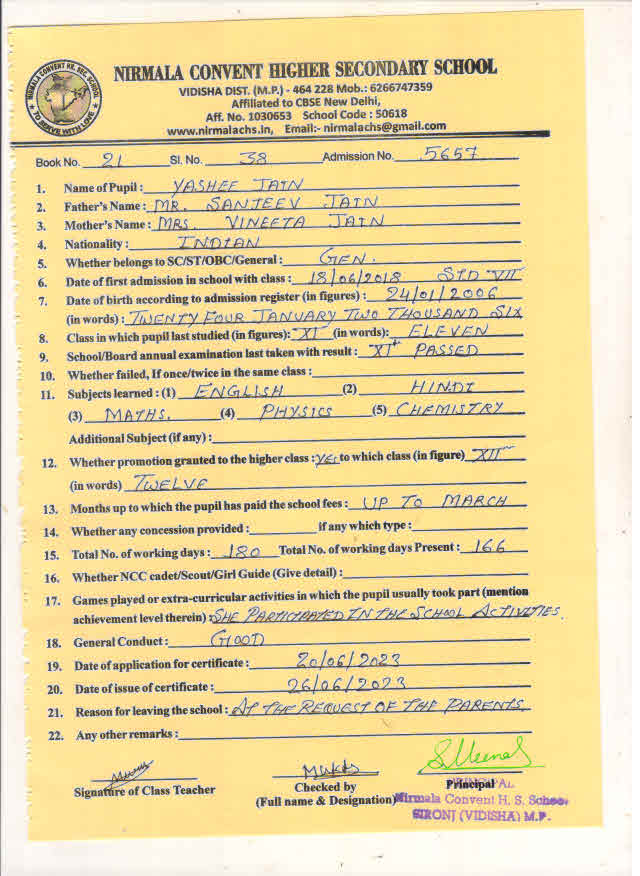 NIRMALA CONVENT HR. SEC. SCHOOL
TO SERVE WITH LOVE
NIRMALA CONVENT HIGHER SECONDARY SCHOOL
VIDISHA DIST. (M.P.) - 464 228 Mob.: 6266747359
Affiliated to CBSE New Delhi,
Aff. No. 1030653 School Code : 50618
www.nirmalachs.in, Email:- nirmalachs@gmail.com
Book No. 21 Sl. No. 38 Admission No. 5657
1. Name of Pupil : YASHEE JAIN
2. Father's Name : MR. SANJEEV JAIN
3. Mother's Name : MRS. VINEETA JAIN
4. Nationality : INDIAN
5. Whether belongs to SC/ST/OBC/General : GEN.
6. Date of first admission in school with class : 18/06/2018 STD VII
7. Date of birth according to admission register (in figures) : 24/01/2006
(in words) : TWENTY FOUR JANUARY TWO THOUSAND SIX
8. Class in which pupil last studied (in figures): XI (in words): ELEVEN
9. School/Board annual examination last taken with result : XIth PASSED
10. Whether failed, If once/twice in the same class :
11. Subjects learned : (1) ENGLISH (2) HINDI
(3) MATHS. (4) PHYSICS (5) CHEMISTRY
Additional Subject (if any) :
12. Whether promotion granted to the higher class : yes to which class (in figure) XII
(in words) TWELVE
13. Months up to which the pupil has paid the school fees : UP TO MARCH
14. Whether any concession provided : if any which type :
15. Total No. of working days : 180 Total No. of working days Present : 166
16. Whether NCC cadet/Scout/Girl Guide (Give detail) :
17. Games played or extra-curricular activities in which the pupil usually took part (mention
achievement level therein) : SHE PARTICIPATED IN THE SCHOOL ACTIVITIES.
18. General Conduct : GOOD
19. Date of application for certificate : 20/06/2023
20. Date of issue of certificate : 26/06/2023
21. Reason for leaving the school : AT THE REQUEST OF THE PARENTS.
22. Any other remarks :
Signature of Class Teacher
Checked by
(Full name & Designation)
Principal
PRINCIPAL
Nirmala Convent H. S. School
SIRONJ (VIDISHA) M.P.